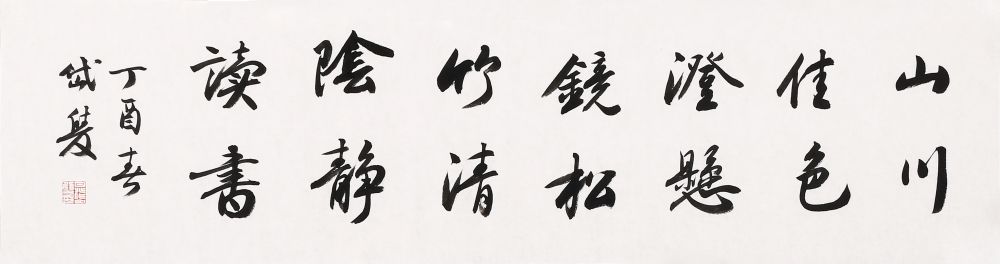 山川
佳色
澄懸
鏡松
竹清
陰静
读书
丁酉春
岱